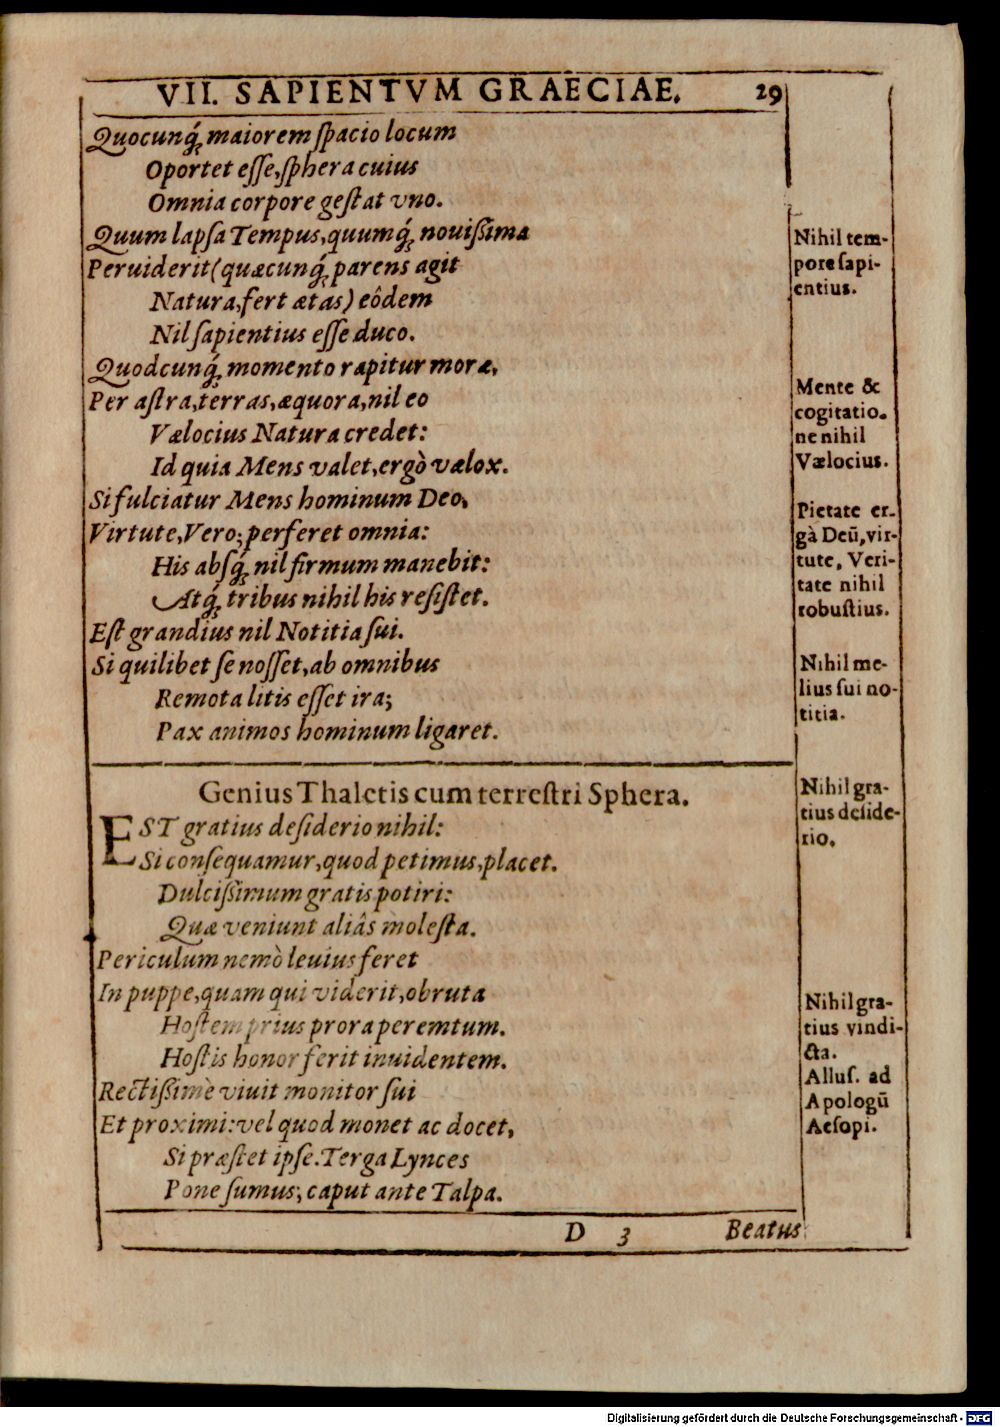 VII. SAPIENTVM GRAECIAE. 29
Quocunq́; maiorem ſpacio locum
Oportet eſſe, ſphera cuius
Omnia corpore geſtat vno.
Quum lapſa Tempus, quumq́; nouiſsima
Peruiderit (quæcunq́; parens agit
Natura, fert ætas) eôdem
Nil ſapientius eſſe duco.
Quodcunq́; momento rapitur moræ,
Per aſtra, terras, æquora, nil eo
Vælocius Natura credet:
Id quia Mens valet, ergò vælox.
Si fulciatur Mens hominum Deo,
Virtute, Vero; perferet omnia:
His absq́; nil firmum manebit:
Atq́; tribus nihil his reſiſtet.
Eſt grandius nil Notitia ſui.
Si quilibet ſe noſſet, ab omnibus
Remota litis eſſet ira;
Pax animos hominum ligaret.
Nihil tem-
pore ſapi-
entius.
Mente &
cogitatio-
ne nihil
Vælocius.
Pietate er-
gà Deū, vir-
tute, Veri-
tate nihil
robuſtius.
Nihil me-
lius ſui no-
titia.
Genius Thaletis cum terreſtri Sphera.
EST gratius deſiderio nihil:
Si conſequamur, quod petimus, placet.
Dulciſsimum gratis potiri:
Quæ veniunt aliâs moleſta.
Periculum nemò leuius feret
In puppe, quam qui viderit, obruta
Hoſtem prius prora peremtum.
Hoſtis honor ferit inuidentem.
Rectiſsimè viuit monitor ſui
Et proximi: vel quod monet ac docet,
Si præſtet ipſe. Terga Lynces
Pone ſumus; caput ante Talpa.
Nihil gra-
tius deſide-
rio.
Nihil gra-
tius vindi-
cta.
Alluſ. ad
Apologū
Aeſopi.
D 3 Beatus
Digitalisierung gefördert durch die Deutsche Forschungsgemeinschaft - DFG